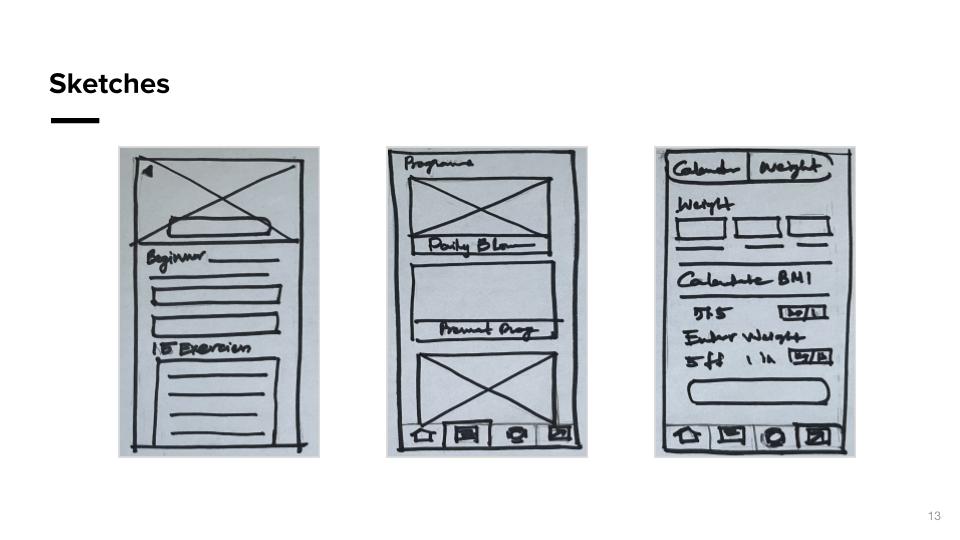 Sketches
Beginner
15 Exercises
Programs
Daily
Calendar Weight
Weight
Calculate BMI
Enter Weight
5 ff 1 in
13